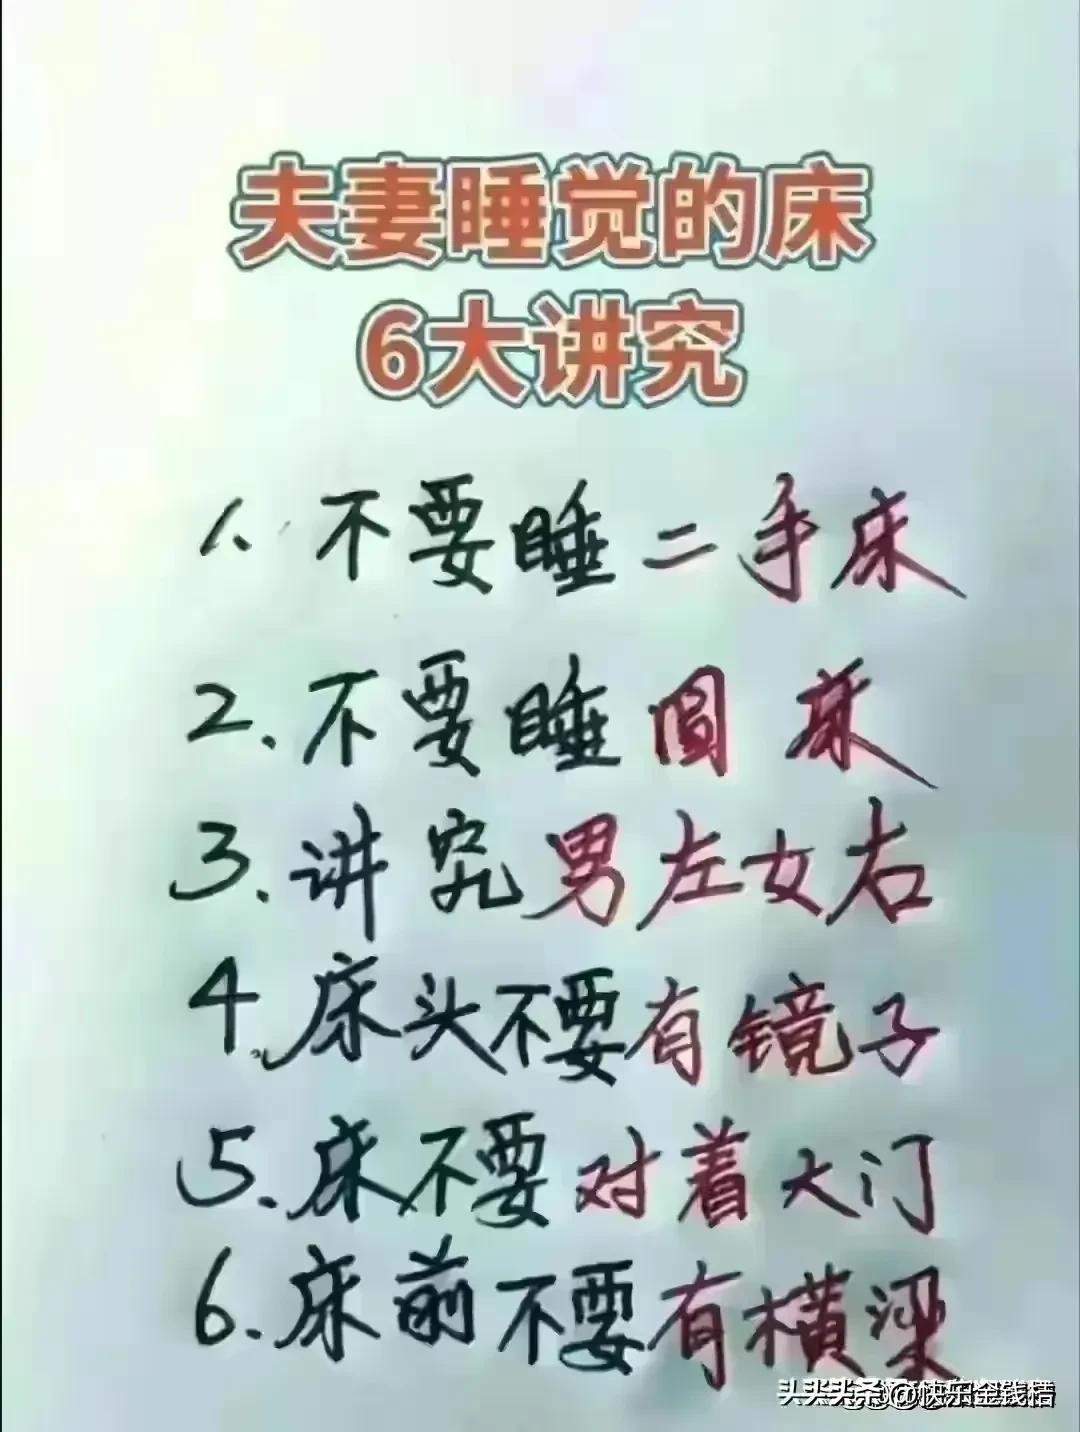 夫妻睡觉的床
6大讲究
1、不要睡二手床
2.不要睡圆床
3.讲究男左女右
4、床头不要有镜子
5.床不要对着大门
6.床前不要有横梁
头条 @快乐金钱猪